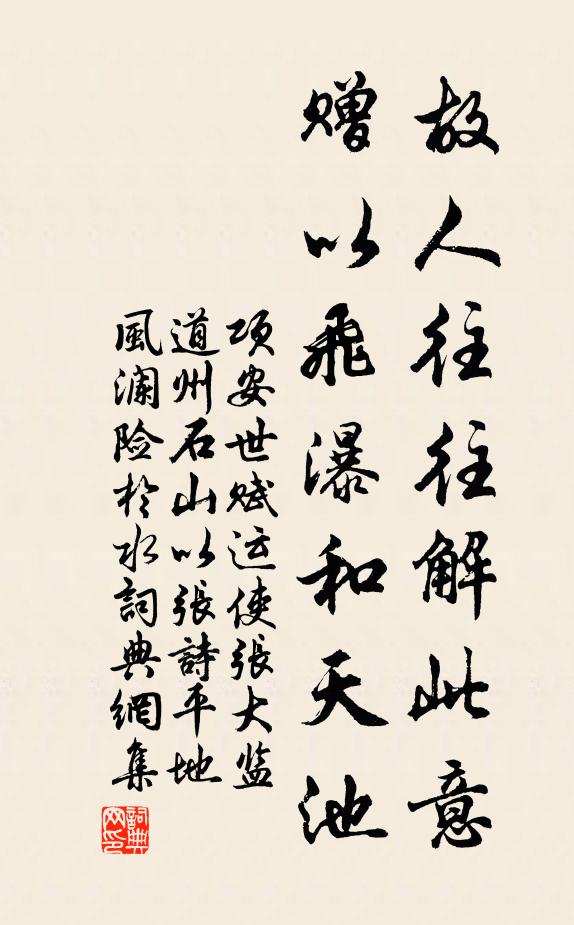 故人往往解此意
赠以飛瀑和天池
项安世赋运使張大监
道州石山以張詩平地
風澜险於水詞典網集
詞典网印